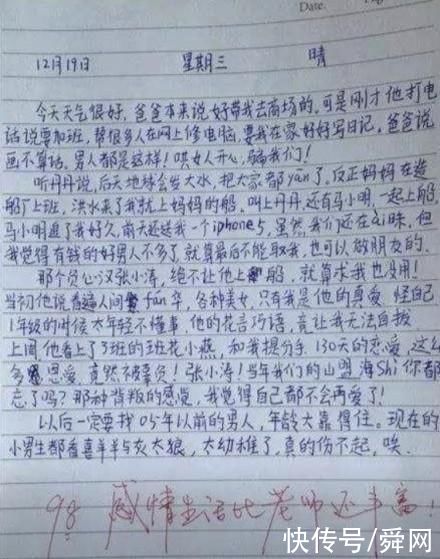 Date.
12月19日 星期三 晴
今天天气很好，爸爸本来说好带我去商场的，可是刚才他打电
话说要加班，帮很多人在网上修电脑，要我在家好好写日记，爸爸说
画不算话，男人都是这样！哄女人开心，骗我们！
听丹丹说，后天地球会发大水，把大家都yān了，反正妈妈在造
船厂上班，洪水来了我就上妈妈的船，叫上丹丹，还有马小明，一起上船，
马小明追了我好久，前天还送我一个iphone5，虽然，我们还在ài昧，但
我觉得有钱的好男人不多了，就算最后不能取我，也可以做朋友的。
那个负心汉张小涛，绝不让他上船，就算求我也没用！
当初他说看遍人间fán华，各种美女，只有我是他的真爱，怪自己
1年级的时候太年轻不懂事，他的花言巧语，竟让我无法自拔
上周，他看上了3班的班花小燕，和我提分手，130天的恋爱，这么
多恩爱，竟然不被辜负！张小涛！当年我们的山盟海Shi你都
忘了吗？那种背叛的感觉，我觉得自己都不会再爱了！
以后一定要找05年以前的男人，年龄大靠得住。现在的
小男生都看喜羊羊与灰太狼，太幼稚了，真的伤不起，唉
98 感情生活比老师还丰富！
快传号/舜网